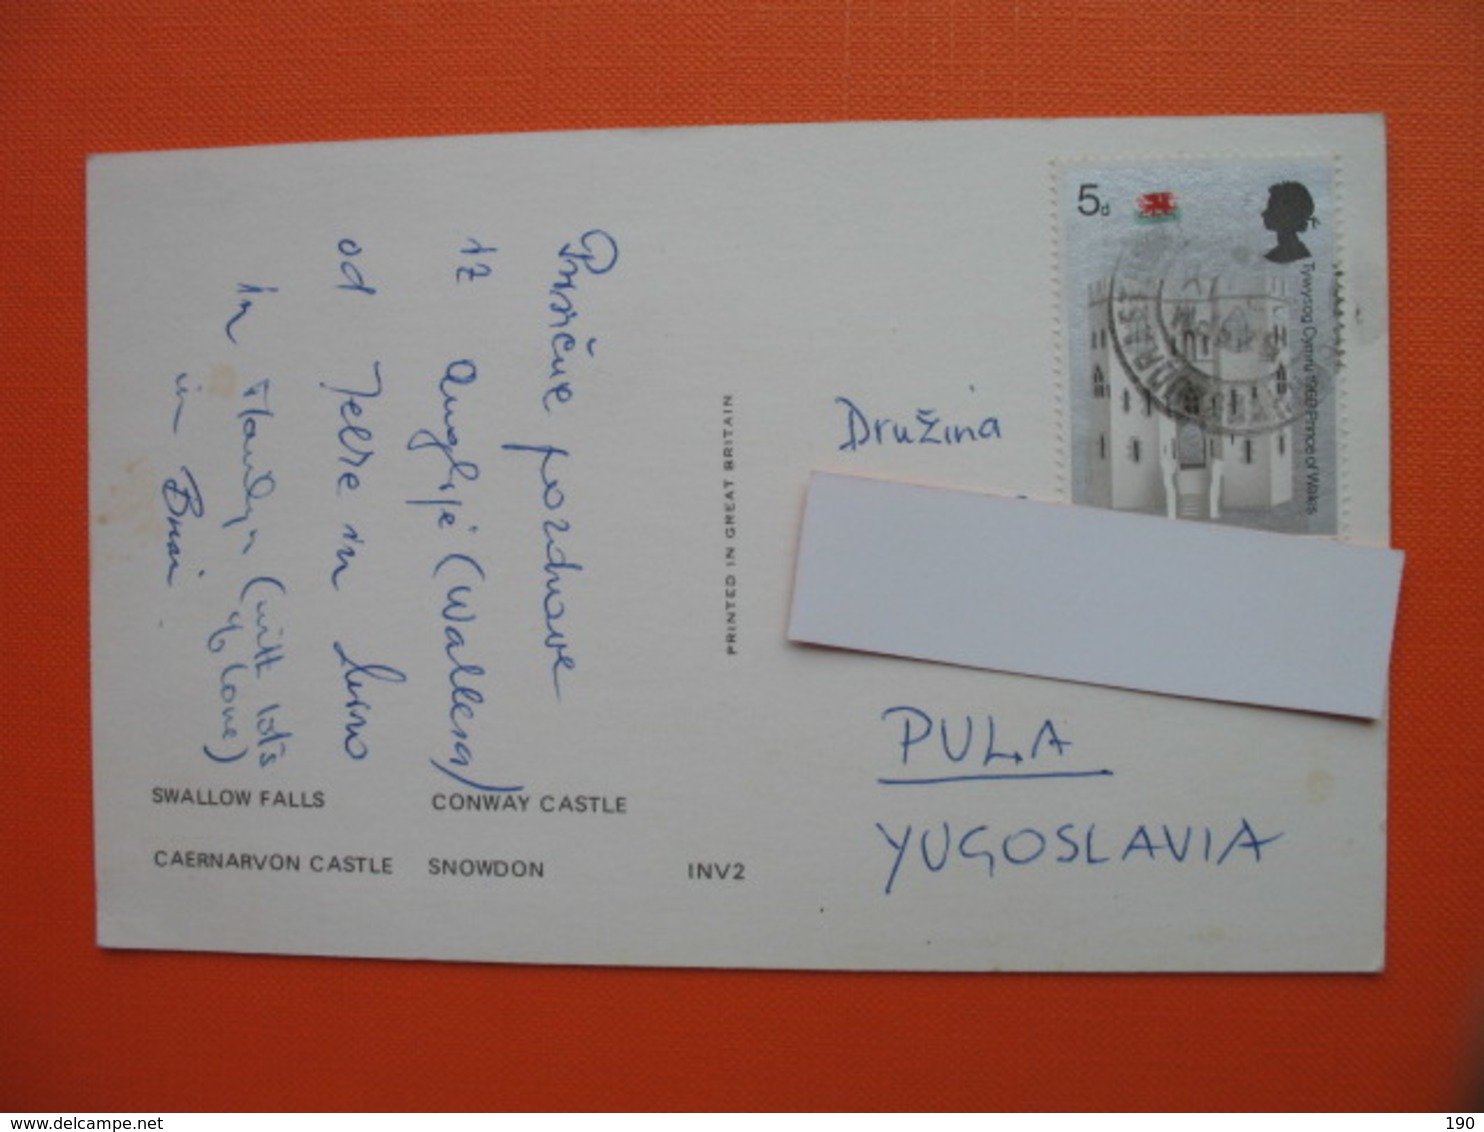 Prisrčne pozdrave
iz Anglije (Wallesa)
od Jelke in
in
(with lots
of love)
in Brian
SWALLOW FALLS
CONWAY CASTLE
CAERNARVON CASTLE
SNOWDON
INV2
PRINTED IN GREAT BRITAIN
5d
Tywysog Cymru 1969 Prince of Wales
Družina
PULA
YUGOSLAVIA
www.delcampe.net
my collection
190